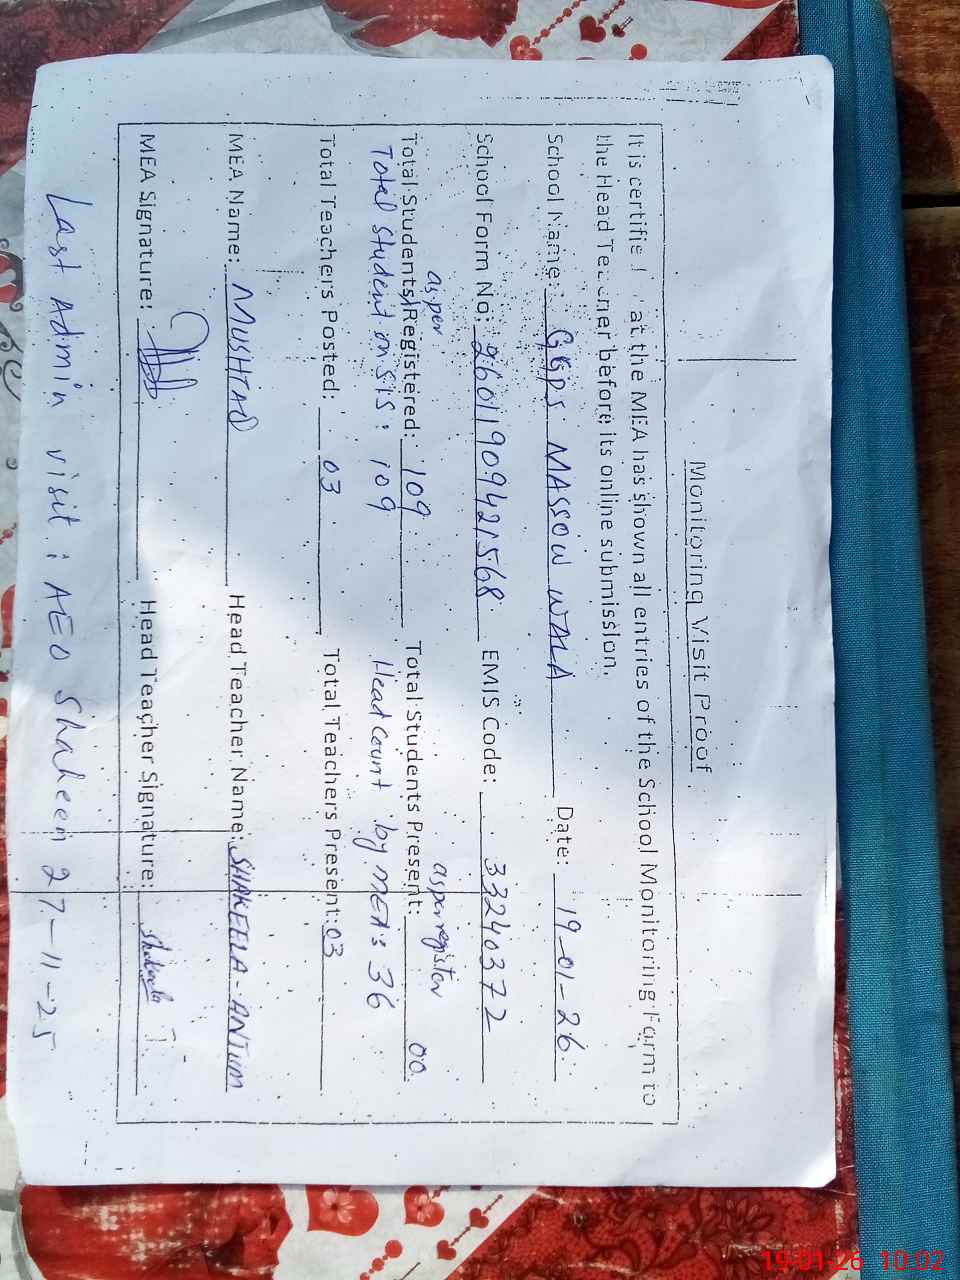 Monitoring Visit Proof
It is certified that the MEA has shown all entries of the School Monitoring Form to
the Head Teacher before its online submission.
School Name: GGPS MASSOW WALA Date: 19-01-26
School Form No: 26011909421568 EMIS Code: 33240372
as per as per register
Total Students Registered: 109 Total Students Present: 00
Total student on SIS: 109 Head count by MEA: 36
Total Teachers Posted: 03 Total Teachers Present: 03
MEA Name: MUSHTAQ Head Teacher Name: SHAKEELA-ANJUM
MEA Signature: Head Teacher Signature: Shakeela
Last Admin visit: AEO Shaheen 27-11-25
19-01-26 10:02